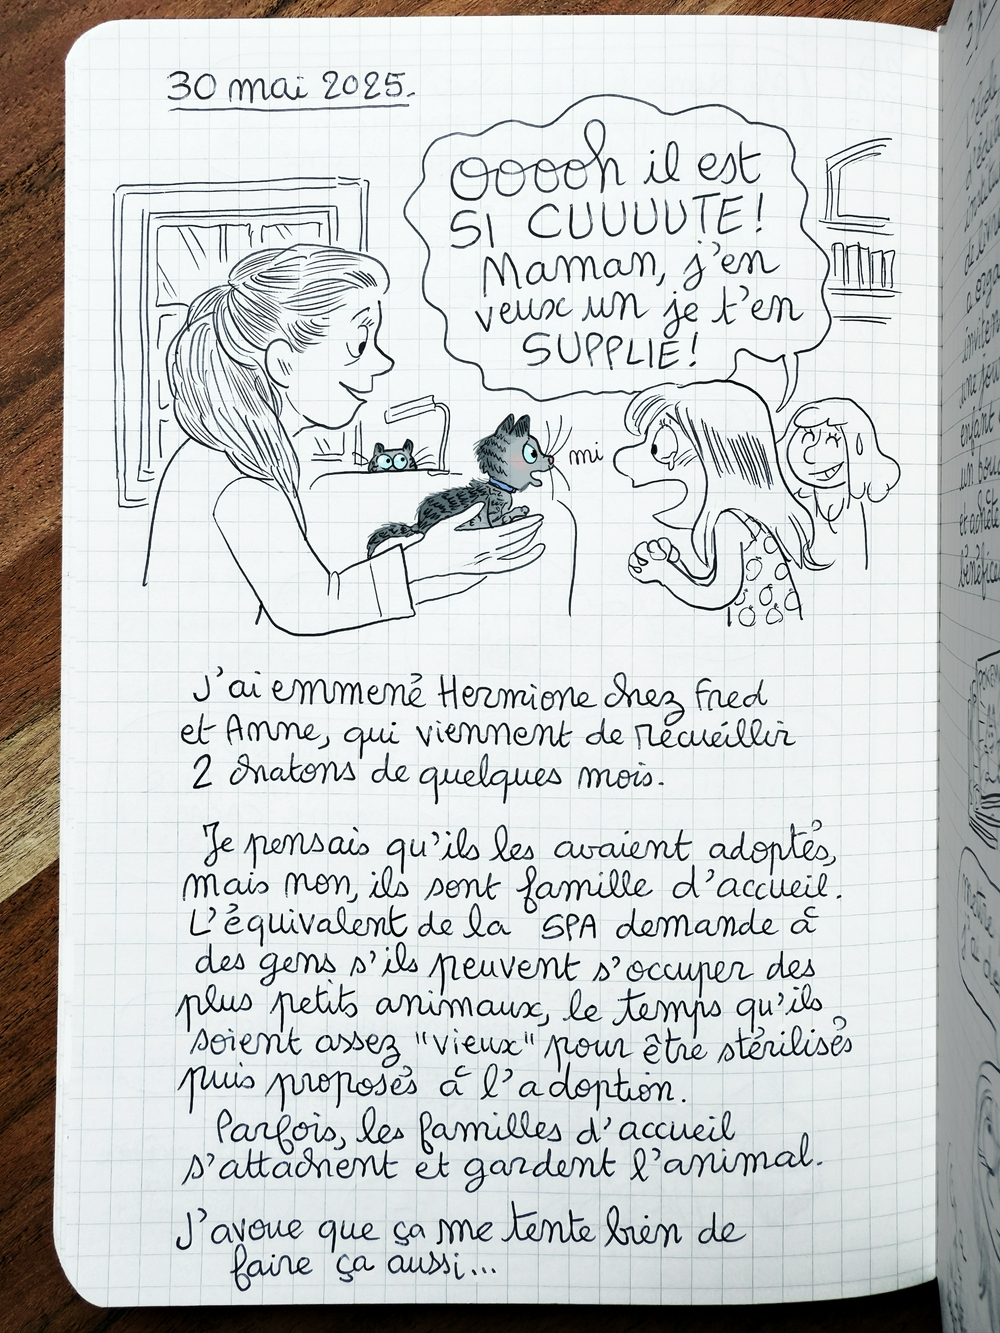 30 mai 2025.
Ooooh il est
SI CUUUUTE!
Maman, j'en
veux un je t'en
SUPPLIE!
mi
J'ai emmené Hermione chez Fred
et Anne, qui viennent de recueillir
2 chatons de quelques mois.
Je pensais qu'ils les avaient adoptés,
mais non, ils sont famille d'accueil.
L'équivalent de la SPA demande à
des gens s'ils peuvent s'occuper des
plus petits animaux, le temps qu'ils
soient assez "vieux" pour être stérilisés
puis proposés à l'adoption.
Parfois, les familles d'accueil
s'attachent et gardent l'animal.
J'avoue que ça me tente bien de
faire ça aussi...